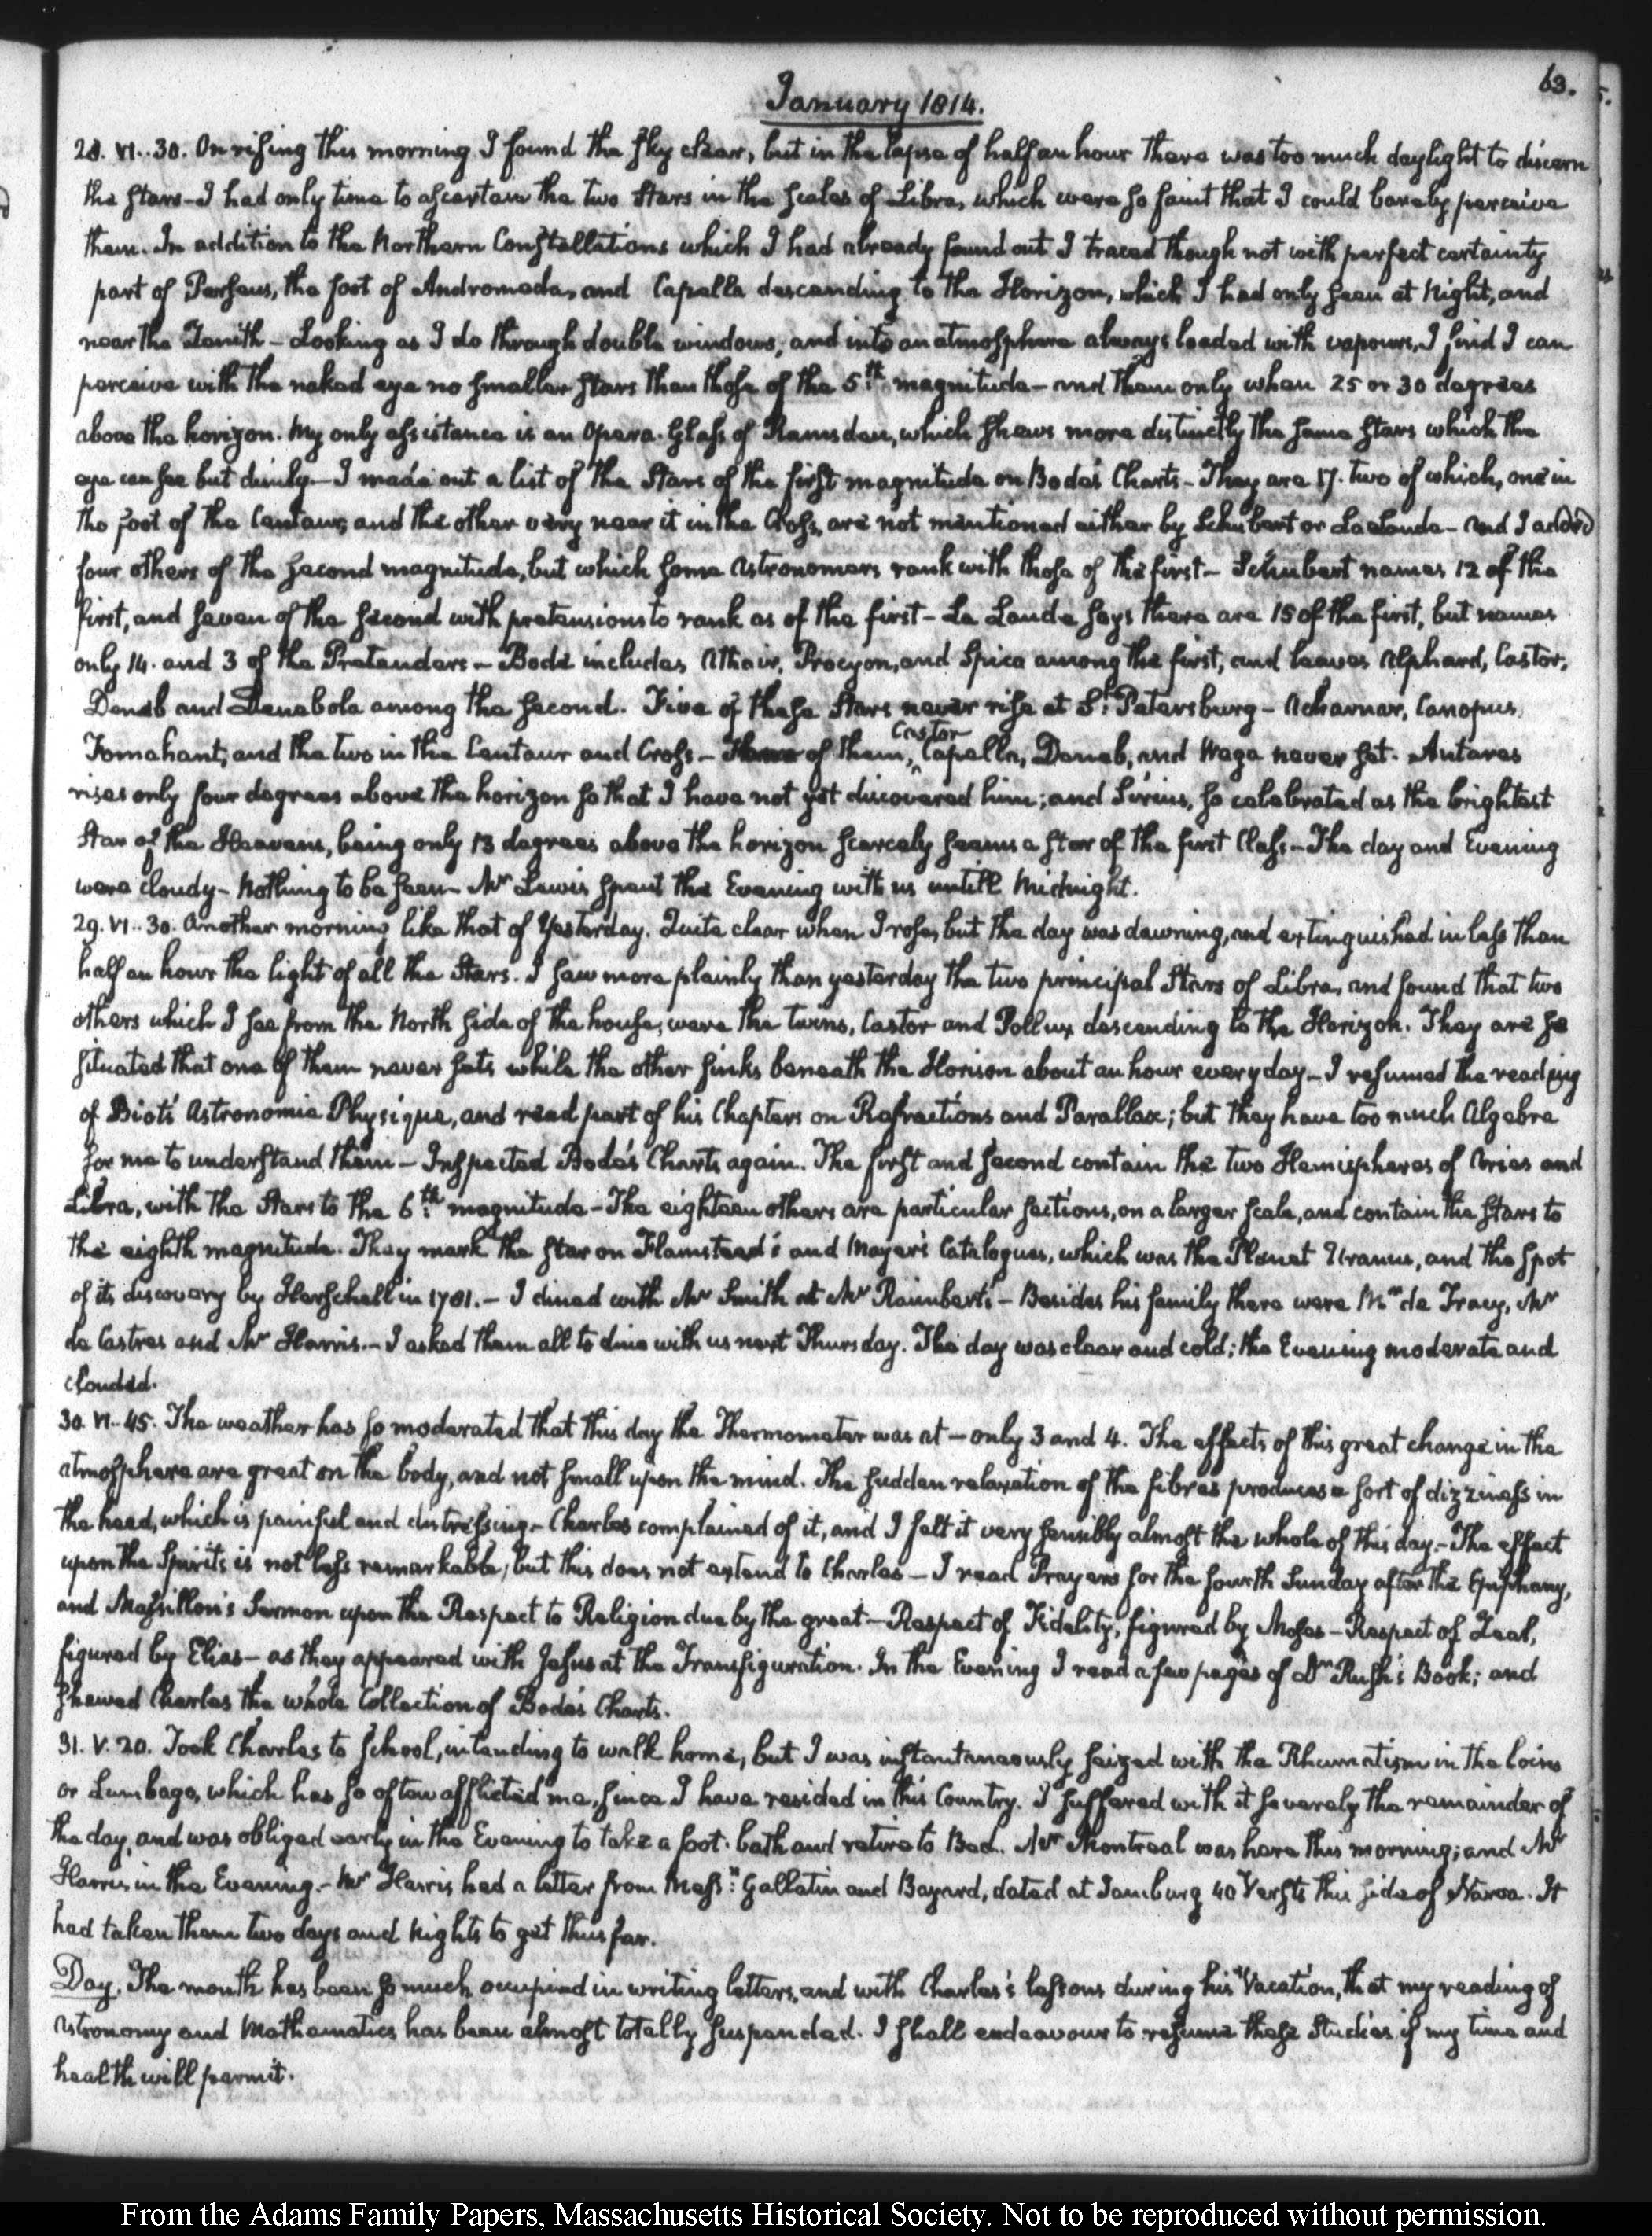 63.
January 1814.
28. VI..30. On rising this morning I found the sky clear, but in the lapse of half an hour there was too much daylight to discern
the stars—I had only time to ascertain the two Stars in the scales of Libra, which were so faint that I could barely perceive
them. In addition to the Northern Constellations which I had already found out I traced though not with perfect certainty
part of Perseus, the foot of Andromeda, and Capella descending to the Horizon, which I had only seen at Night, and
near the Zenith—Looking as I do through double windows, and into an atmosphere always loaded with vapours, I find I can
perceive with the naked eye no smaller stars than those of the 5th magnitude—and them only when 25 or 30 degrees
above the horizon. My only assistance is an Opera-Glass of Ramsden, which shews more distinctly the same stars which the
eye can see but dimly—I made out a list of the Stars of the first magnitude on Bode's Charts—They are 17. two of which, one in
the foot of the Centaur, and the other very near it in the Cross, are not mentioned either by Schubert or La Lande—And I added
four others of the second magnitude, but which some Astronomers rank with those of the first—Schubert names 12 of the
first, and seven of the second with pretensions to rank as of the first—La Lande says there are 15 of the first, but names
only 14. and 3 of the Pretenders—Bode includes Athair, Procyon, and Spica among the first, and leaves Alphard, Castor,
Deneb and Denebola among the second. Five of these Stars never rise at St. Petersburg—Acharnar, Canopus,
Fomahant, and the two in the Centaur and Cross— of them, Castor Capella, Deneb, and Wega never set. Antares
rises only four degrees above the horizon so that I have not yet discovered him; and Sirius, so celebrated as the brightest
Star of the Heavens, being only 13 degrees above the horizon scarcely seems a star of the first Class—The day and Evening
were cloudy—Nothing to be seen—Mr Lewis spent the Evening with us untill Midnight.
29. VI..30. Another morning like that of Yesterday. Quite clear when I rose, but the day was dawning, and extinguished in less than
half an hour the light of all the Stars. I saw more plainly than yesterday the two principal Stars of Libra, and found that two
others which I see from the North side of the house, were the twins, Castor and Pollux descending to the Horizon. They are so
situated that one of them never sets while the other sinks beneath the Horison about an hour every day—I resumed the reading
of Biot's Astronomie Physique, and read part of his Chapters on Refractions and Parallax; but they have too much Algebra
for me to understand them—Inspected Bode's Charts again. The first and second contain the two Hemispheres of Aries and
Libra, with the Stars to the 6th magnitude—The eighteen others are particular sections, on a larger scale, and contain the stars to
the eighth magnitude. They mark the star on Flamstead's and Mayer's Catalogues, which was the Planet Uranus, and the spot
of its discovery by Herschell in 1781.—I dined with Mr Smith at Mr Raimbert's—Besides his family there were Mr de Tracy, Mr
de Castres and Mr Harris.—I asked them all to dine with us next Thursday. The day was clear and cold; the Evening moderate and
clouded.
30. VI..45. The weather has so moderated that this day the Thermometer was at—only 3 and 4. The effects of this great change in the
atmosphere are great on the body, and not small upon the mind. The sudden relaxation of the fibres produces a sort of dizziness in
the head, which is painful and distressing—Charles complained of it, and I felt it very sensibly almost the whole of this day.—The effect
upon the Spirits is not less remarkable, but this does not extend to Charles—I read Prayers for the fourth Sunday after the Epiphany,
and Massillon's Sermon upon the Respect to Religion due by the great—Respect of Fidelity, figured by Moses—Respect of Zeal,
figured by Elias—as they appeared with Jesus at the Transfiguration. In the Evening I read a few pages of Dr Rush's Book; and
shewed Charles the whole Collection of Bode's Charts.
31. V.20. Took Charles to School, intending to walk home, but I was instantaneously seized with the Rheumatism in the loins
or Lumbago, which has so often afflicted me, since I have resided in this Country. I suffered with it severely the remainder of
the day, and was obliged early in the Evening to take a foot-bath and retire to Bed. Mr Montreal was here this morning; and Mr
Harris in the Evening.—Mr Harris had a letter from Messrs Gallatin and Bayard, dated at Jamburg 40 Versts this side of Narva. It
had taken them two days and Nights to get thus far.
Day. The month has been so much occupied in writing letters, and with Charles's lessons during his Vacation, that my reading of
Astronomy and Mathematics has been almost totally suspended. I shall endeavour to resume these Studies if my time and
health will permit.
From the Adams Family Papers, Massachusetts Historical Society. Not to be reproduced without permission.